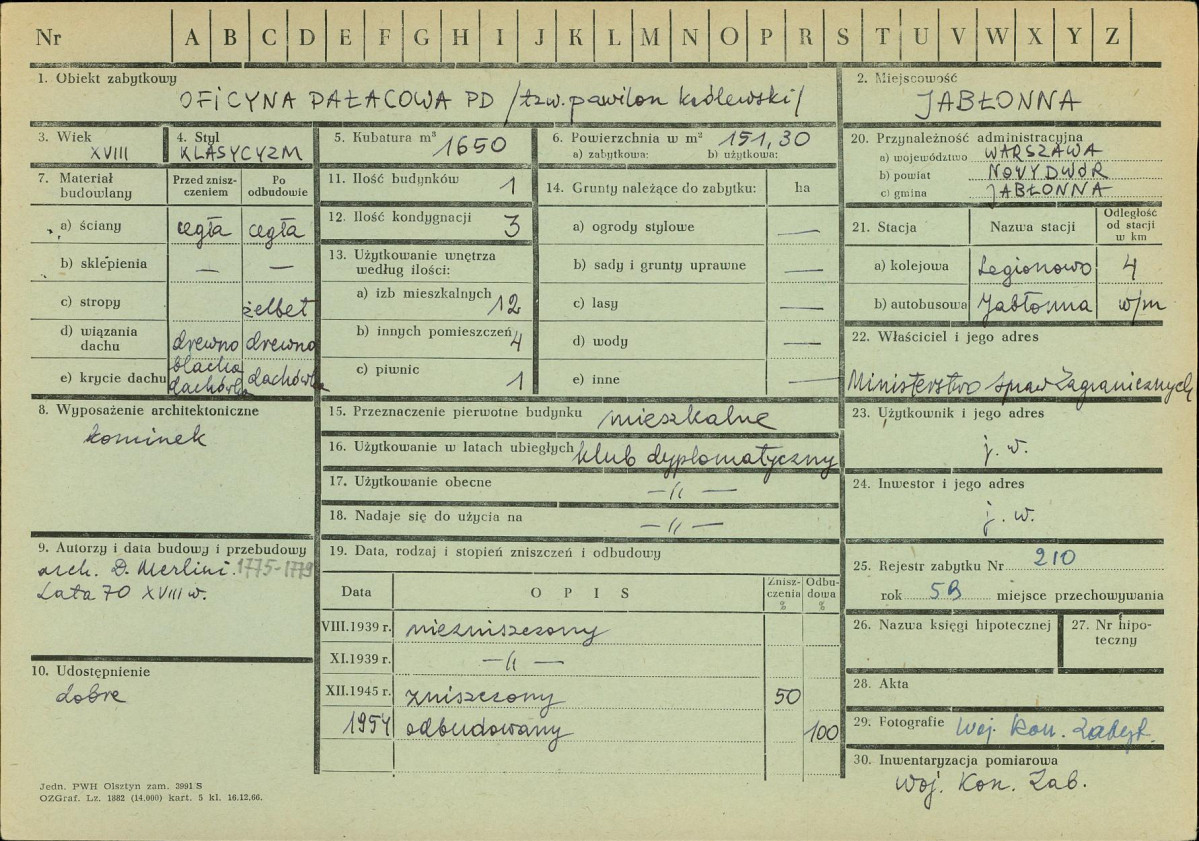 Nr A B C D E F G H I J K L M N O P R S T U V W X Y Z
1. Obiekt zabytkowy
OFICYNA PAŁACOWA PD /tzw. pawilon królewski/
2. Miejscowość
JABŁONNA
3. Wiek
XVIII
4. Styl
KLASYCYZM
5. Kubatura m³ 1650
6. Powierzchnia w m² 151,30
a) zabytkowa: b) użytkowa:
20. Przynależność administracyjna
a) województwo WARSZAWA
b) powiat NOWY DWÓR
c) gmina JABŁONNA
7. Materiał budowlany
Przed zniszczeniem
Po odbudowie
a) ściany cegła cegła
b) sklepienia — —
c) stropy żelbet
d) wiązania dachu drewno drewno
e) krycie dachu blacha dachówka dachówka
11. Ilość budynków 1
12. Ilość kondygnacji 3
13. Użytkowanie wnętrza według ilości:
a) izb mieszkalnych 12
b) innych pomieszczeń 4
c) piwnic 1
14. Grunty należące do zabytku: ha
a) ogrody stylowe —
b) sady i grunty uprawne —
c) lasy —
d) wody —
e) inne —
21. Stacja Nazwa stacji Odległość od stacji w km
a) kolejowa Legionowo 4
b) autobusowa Jabłonna w/m
22. Właściciel i jego adres
Ministerstwo Spraw Zagranicznych
8. Wyposażenie architektoniczne
kominek
15. Przeznaczenie pierwotne budynku mieszkalne
16. Użytkowanie w latach ubiegłych klub dyplomatyczny
17. Użytkowanie obecne —//—
18. Nadaje się do użycia na —//—
23. Użytkownik i jego adres
j. w.
24. Inwestor i jego adres
j. w.
9. Autorzy i data budowy i przebudowy
arch. D. Merlini. 1775-1779
Lata 70 XVIII w.
10. Udostępnienie
dobre
19. Data, rodzaj i stopień zniszczeń i odbudowy
Data OPIS Zniszczenia % Odbudowa %
VIII.1939 r. niezniszczony
XI.1939 r. —//—
XII.1945 r. zniszczony 50
1954 odbudowany 100
25. Rejestr zabytku Nr 210
rok 59 miejsce przechowywania
26. Nazwa księgi hipotecznej
27. Nr hipoteczny
28. Akta
29. Fotografie Woj. Kon. Zabyt.
30. Inwentaryzacja pomiarowa
Woj. Kon. Zab.
Jedn. PWH Olsztyn zam. 3991 S
OZGraf. Lz. 1882 (14.000) kart. 5 kl. 16.12.66.